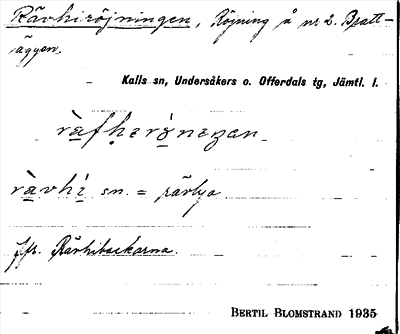 Rävhiröjningen, Röjning å nr 2. Bratt-
äggen.
Kalls sn, Undersåkers o. Offerdals tg, Jämtl. l.
ràvhì sn. = rävlya
jfr. Rävhibackarna.
BERTIL BLOMSTRAND 1935